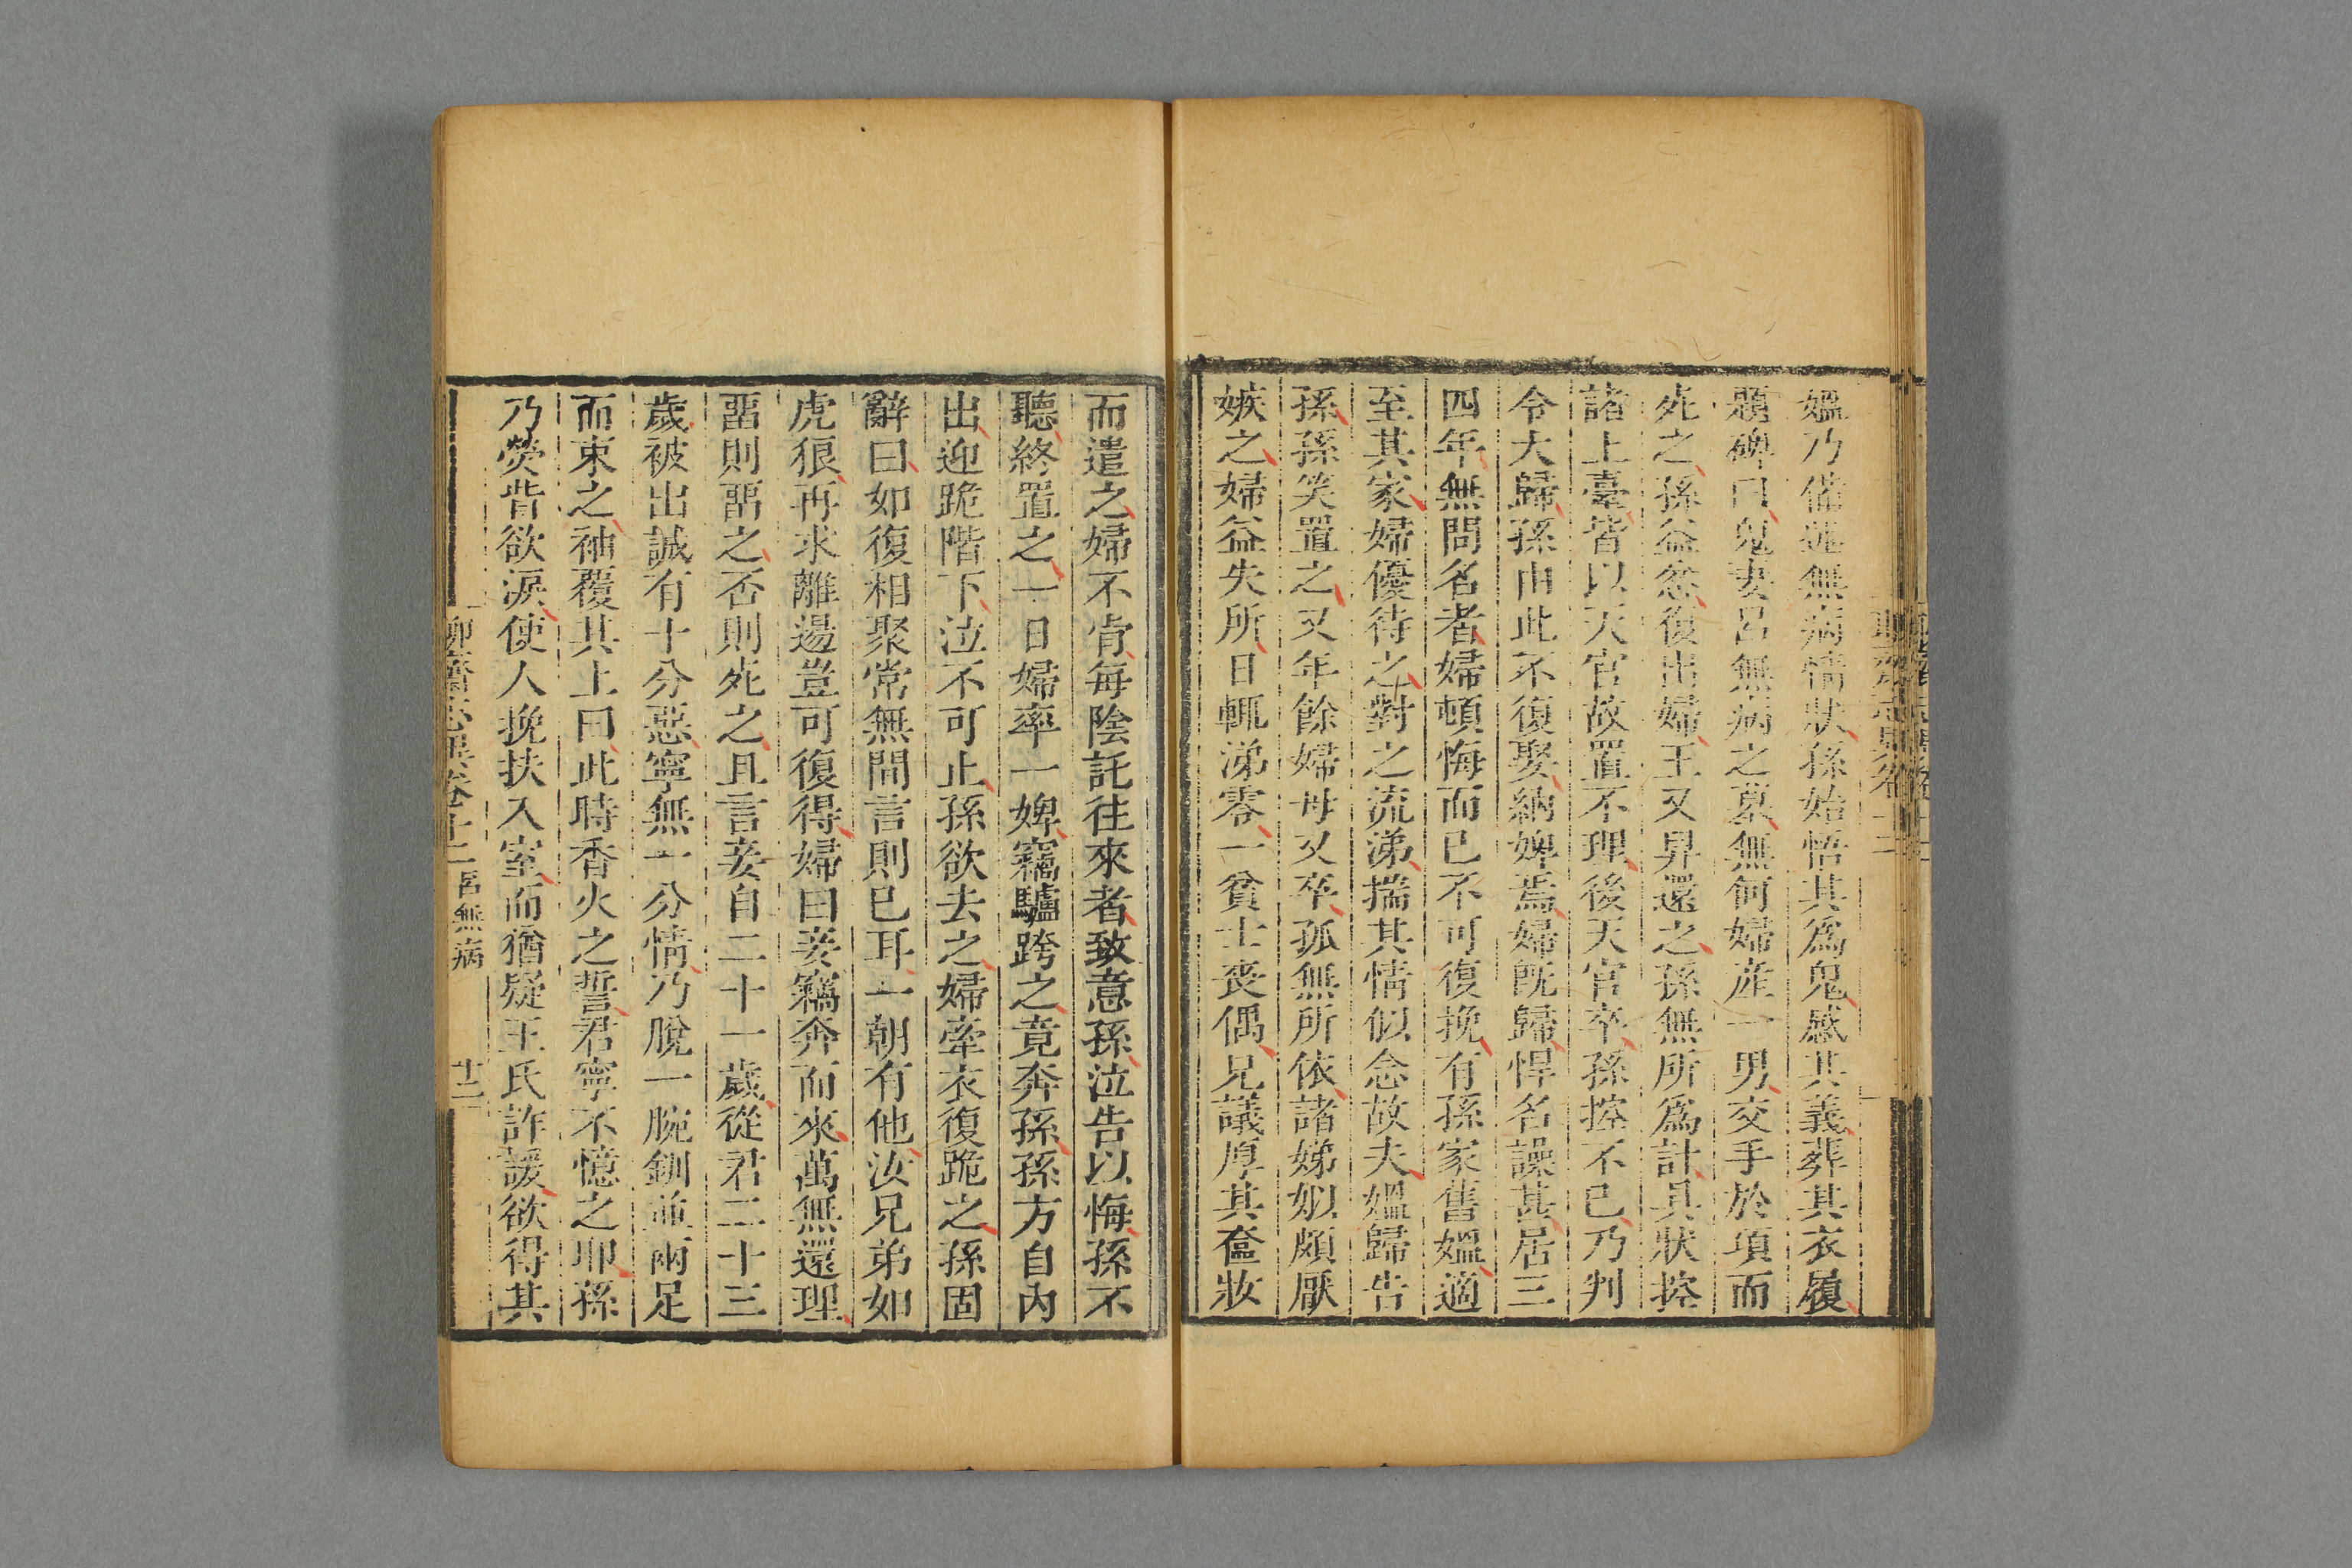 媼乃備述無病情狀孫始悟其爲鬼感其義葬其衣履
題碑曰鬼妻呂無病之墓無何婦産一男交手於項而
死之孫益忿復出婦王又舁還之孫無所爲計具狀控
諸上臺皆以天官故置不理後天官卒孫控不已乃判
令大歸孫由此不復娶納婢焉婦旣歸悍名譟甚居三
四年無問名者婦頓悔而已不可復挽有孫家舊媼適
至其家婦優待之對之流涕揣其情似念故夫媼歸告
孫孫笑置之又年餘婦母又卒孤無所依諸娣姒頗厭
嫉之婦益失所日輒涕零一貧士喪偶兄議厚其奩妝
而遣之婦不肯每陰託往來者致意孫泣告以悔孫不
聽終置之一日婦率一婢竊驢跨之竟奔孫孫方自內
出迎跪階下泣不可止孫欲去之婦牽衣復跪之孫固
辭曰如復相聚常無間言則已耳一朝有他汝兄弟如
虎狼再求離逷豈可復得婦曰妾竊奔而來萬無還理
畱則畱之否則死之且言妾自二十一歲從君二十三
歲被出誠有十分惡寧無一分情乃脫一腕釧並兩足
而束之袖覆其上曰此時香火之誓君寧不憶之耶孫
乃熒眥欲淚使人挽扶入室而猶疑王氏詐諼欲得其
聊齋志異卷十二 呂無病 十二